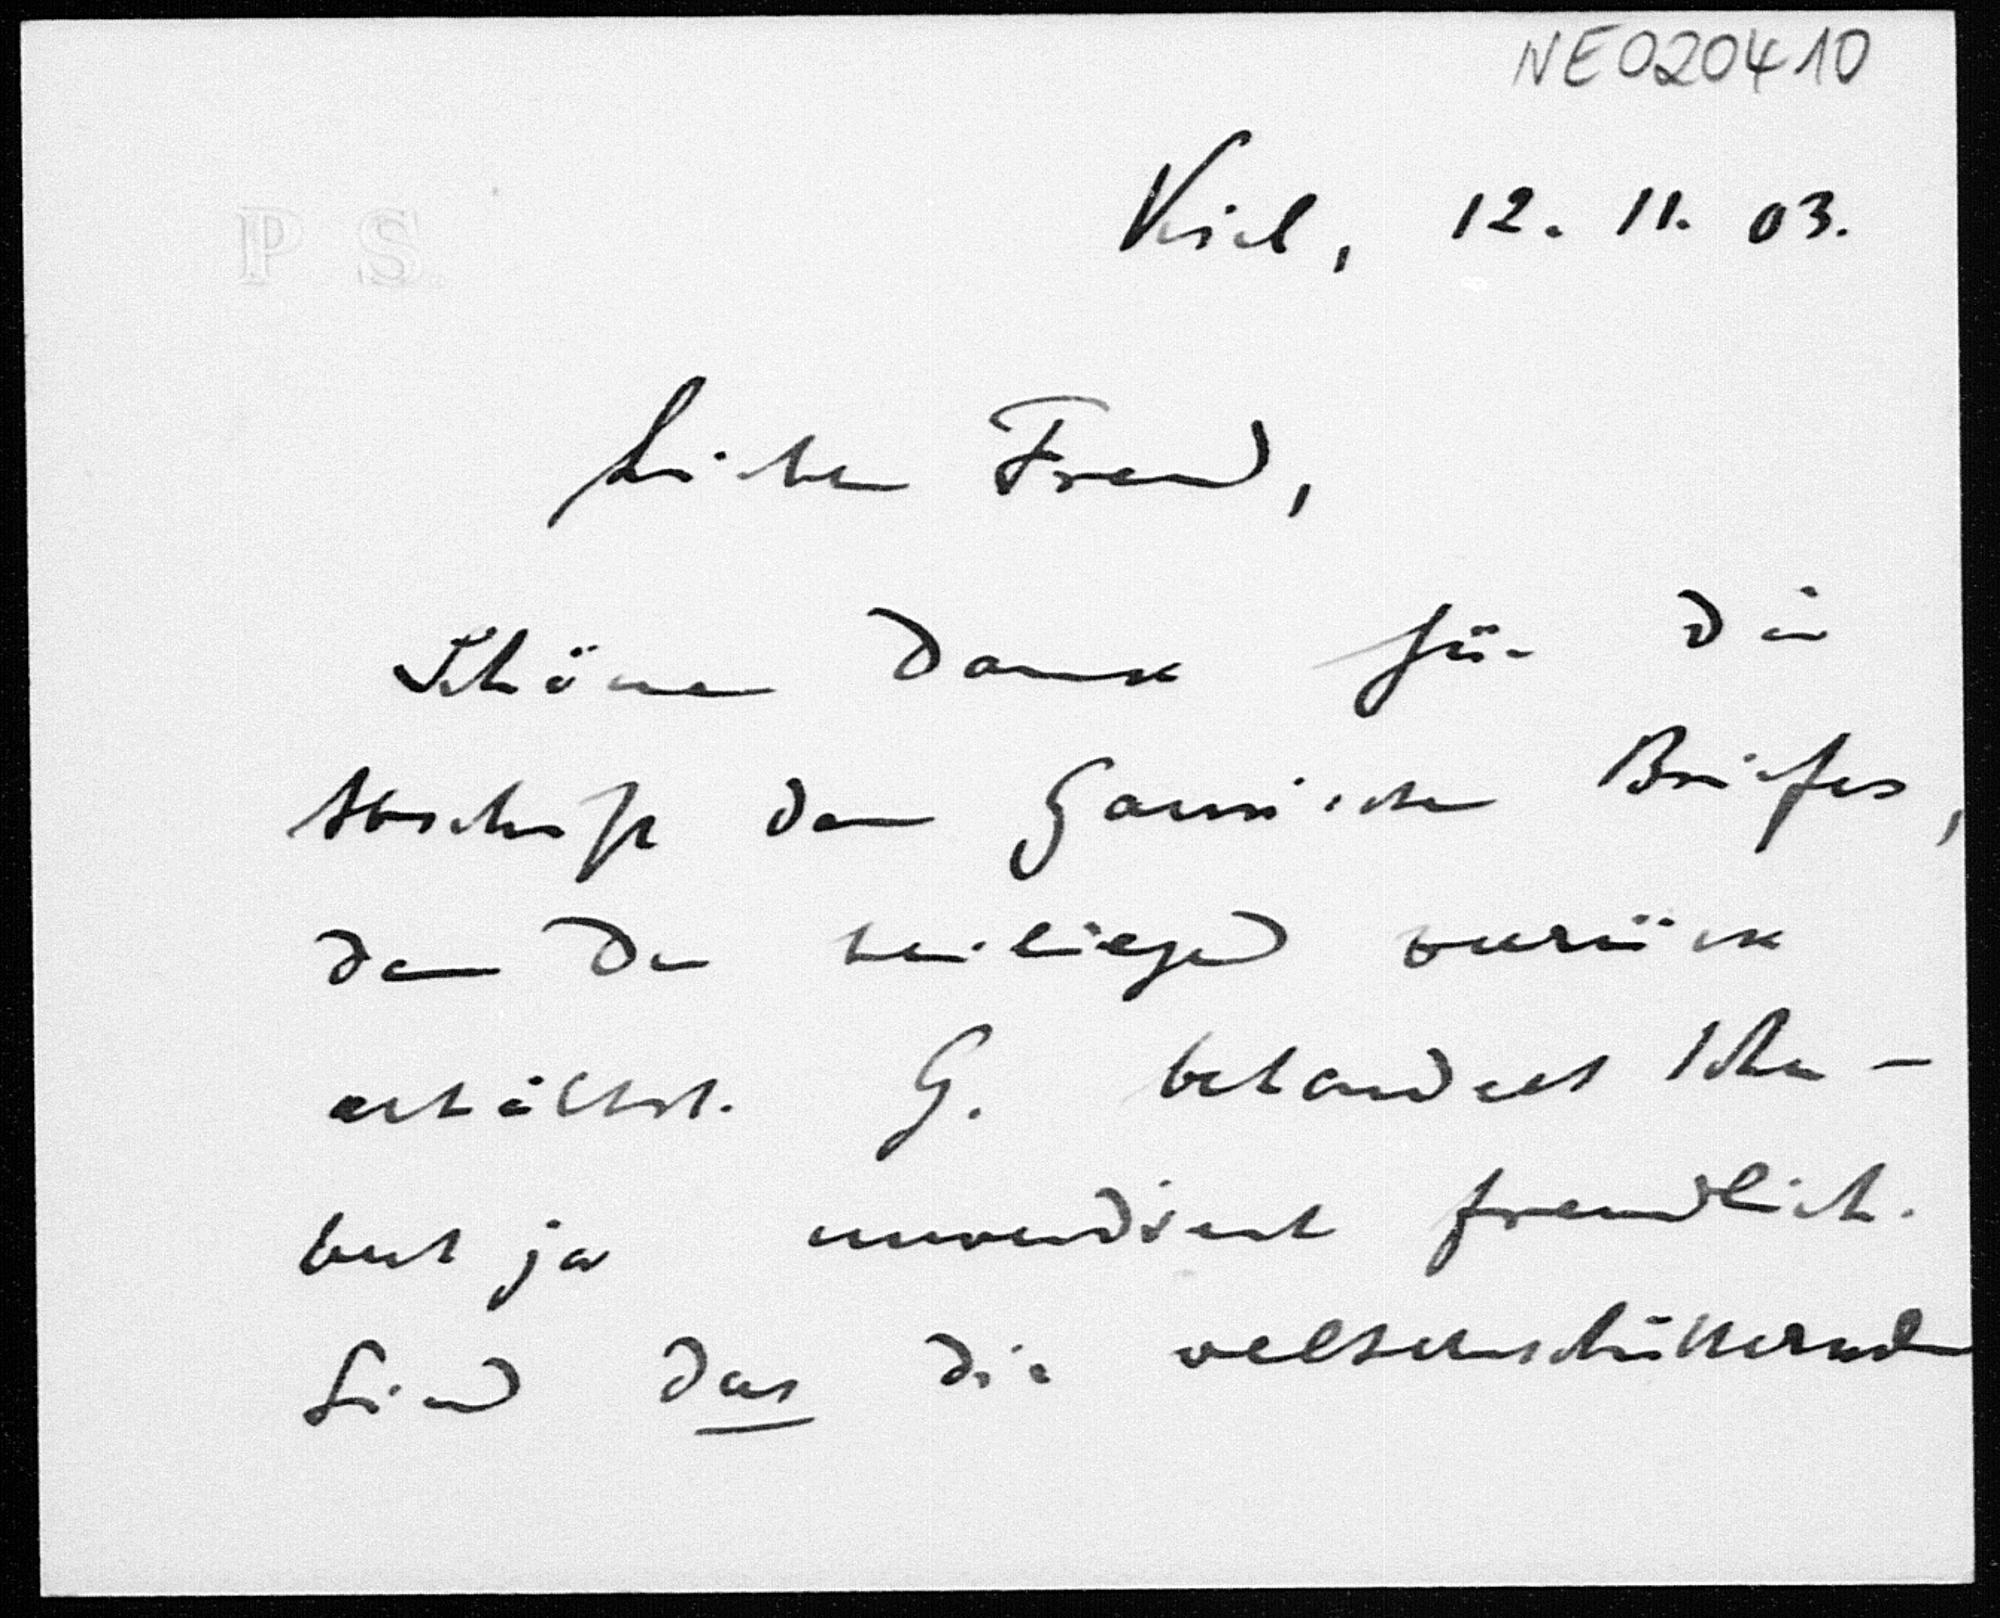 NE020410
P S.
Kiel, 12. 11. 03.
Lieber Freund,
Schönen Dank für die
Abschrift des Briefes,
den Du beiliegend zurück
erhältst. G. behandelt Schu-
bert ja unverdient freundlich.
Sind das die welterschütternden